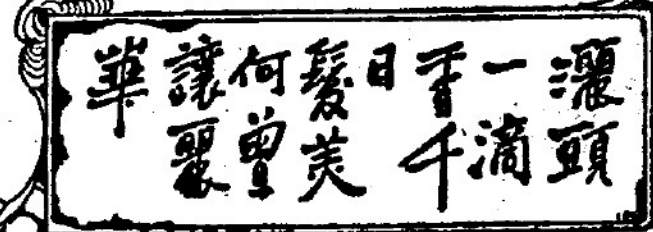 灑頭
一滴
香千
日
髮美
何曾
讓麗
華